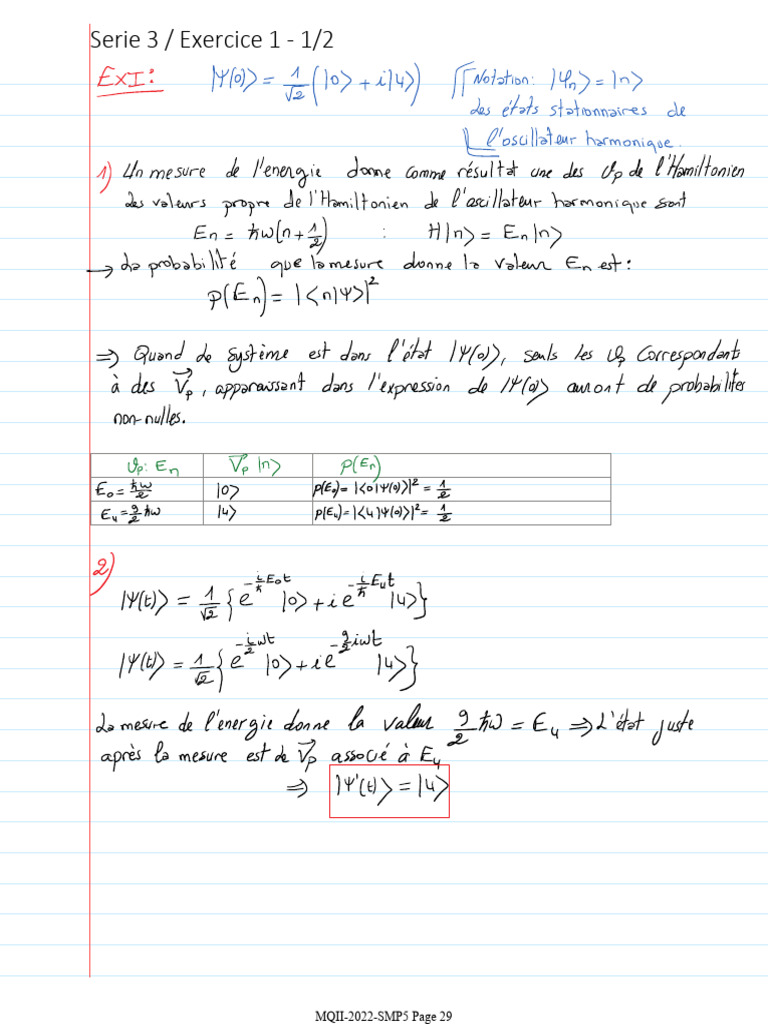 Serie 3 / Exercice 1 - 1/2
Ex I: |Ψ(0)⟩ = 1/√2 (|0⟩ + i|4⟩) Notation: |φₙ⟩ = |n⟩
des états stationnaires de
l'oscillateur harmonique.
1) Un mesure de l'energie donne comme résultat une des vp de l'Hamiltonien
des valeurs propre de l'Hamiltonien de l'oscillateur harmonique sont
Eₙ = ħω(n + 1/2) : H|n⟩ = Eₙ|n⟩
→ La probabilité que la mesure donne la valeur Eₙ est:
p(Eₙ) = |⟨n|Ψ⟩|²
⇒ Quand de système est dans l'état |Ψ(0)⟩, seuls les vp correspondants
à des V⃗p, apparaissant dans l'expression de |Ψ(0)⟩ auront de probabilités
non-nulles.
vp: Eₙ V⃗p |n⟩ p(Eₙ)
E₀ = ħω/2 |0⟩ p(E₀) = |⟨0|Ψ(0)⟩|² = 1/2
E₄ = 9/2 ħω |4⟩ p(E₄) = |⟨4|Ψ(0)⟩|² = 1/2
2)
|Ψ(t)⟩ = 1/√2 {e^(-i/ħ E₀t) |0⟩ + i e^(-i/ħ E₄t) |4⟩}
|Ψ(t)⟩ = 1/√2 {e^(-i/2 ωt) |0⟩ + i e^(-9/2 iωt) |4⟩}
La mesure de l'énergie donne la valeur 9/2 ħω = E₄ ⇒ L'état juste
après la mesure est de V⃗p associé à E₄
⇒ |Ψ'(t)⟩ = |4⟩
MQII-2022-SMP5 Page 29